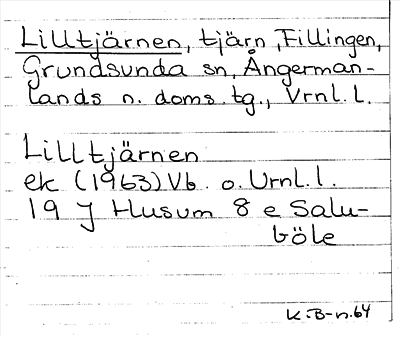 Lilltjärnen, tjärn, Fillingen,
Grundsunda sn, Ångerman-
lands n. doms. tg., Vrnl. l.
Lilltjärnen
ek (1963) Vb. o. Vrnl. l.
19 J Husum 8 e Salu-
böle
K.B-n.64